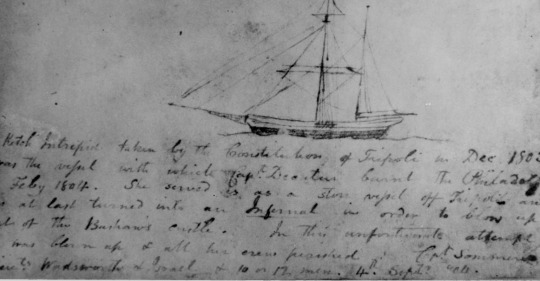 Ketch Intrepid taken by the Constitution, off Tripoli in Dec 180
was the vessel with which Capt Decatur burnt the Philadel
Feby 1804. She served as a store vessel off Tripoli an
at last turned into an Infernal in order to blow up
of the Bashaw's castle. In this unfortunate attempt
was blown up & all her crew perished Capt Sommers
Wadsworth & Israel & 10 or 12 men. 4th Septr